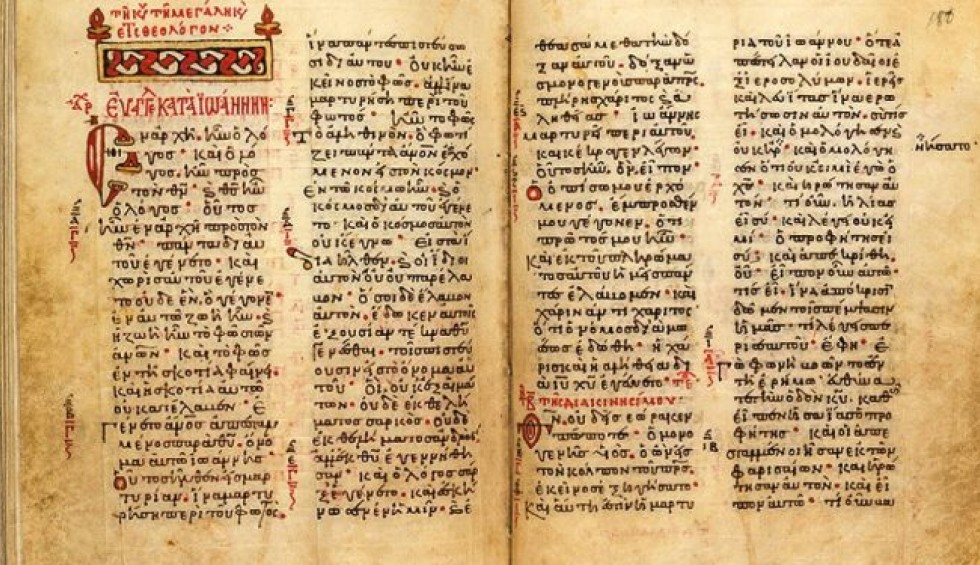 τῇ κυ τῇ μεγάλη κυ
εἰς θεολόγον
εὐαγγε κατὰ ἰωάννην
Ἐν ἀρχῇ ἦν ὁ λό
γος· καὶ ὁ λό
γος ἦν πρὸς
τὸν θν· καὶ θς ἦν
ὁ λόγος· οὗτος
ἦν ἐν ἀρχῇ πρὸς τὸν
θν· πάντα δι αὐ
τοῦ ἐγένετο· καὶ
χωρὶς αὐτοῦ ἐγένε
το οὐδὲ ἕν. ὃ γέγονεν
ἐν αὐτῷ ζωὴ ἦν· καὶ
ἡ ζωὴ ἦν τὸ φῶς τῶν
ἀνων· καὶ τὸ φῶς
ἐν τῇ σκοτία φαίνει
καὶ ἡ σκοτία αὐτὸ
οὐ κατέλαβεν· Ἐ
γένετο ἄνος ἀπεσταλ
μένος παρὰ θυ· ὄνο
μα αὐτῷ ἰωάννης·
οὗτος ἦλθεν εἰς μαρ
τυρίαν. ἵνα μαρτυ
ρήσῃ περὶ τοῦ φωτός.
ἵνα πάντες πιστεύσω
σι δι αὐτοῦ· οὐκ ἦν ἐ
κεῖνος τὸ φῶς· ἀλλ ἵνα
μαρτυρήσῃ περὶ τοῦ
φωτός· ἦν τὸ φῶς
τὸ ἀληθινόν. ὃ φωτί
ζει πάντα ἄνον ἐρχό
μενον εἰς τὸν κόσμον·
ἐν τῷ κόσμω ἦν· καὶ ὁ
κόσμος δι αὐτοῦ ἐγένε
το· καὶ ὁ κόσμος αὐτὸν
οὐκ ἔγνω· εἰς τὰ ἴ
δια ἦλθεν. καὶ οἱ ἴδιοι
αὐτὸν οὐ παρέλα
βον· ὅσοι δὲ ἔλαβον
αὐτὸν. ἔδωκεν αὐτοῖς
ἐξουσίαν τέκνα θυ
γενέσθαι· τοῖς πιστεύ
ουσιν εἰς τὸ ὄνομα αὐ
τοῦ· οἳ. οὐκ ἐξ αἱμά
των· οὐδὲ ἐκ θελή
ματος σαρκὸς. οὐδὲ
ἐκ θελήματος ἀνδρὸς.
ἀλλ ἐκ θυ ἐγεννήθη
σαν· καὶ ὁ λόγος σὰρξ
ἐγένετο. καὶ ἐσκή
νωσεν ἐν ἡμῖν· καὶ ἐ
θεασάμεθα τὴν δό
ξαν αὐτοῦ· δόξαν ὡ
σ μονογενοῦς παρὰ πρς·
πλήρης χάριτος καὶ ἀ
ληθείας· ἰωάννης
μαρτυρεῖ περὶ αὐτοῦ.
καὶ κέκραγεν λέγων·
οὗτος ἦν. ὃν εἶπον
ὁ ὀπίσω μου ἐρχό
μενος. ἔμπροσθέν
μου γέγονεν. ὅτι
πρῶτός μου ἦν·
καὶ ἐκ τοῦ πληρώμα
τος αὐτοῦ ἡμεῖς πάν
τες ἐλάβομεν· καὶ
χάριν ἀντὶ χάριτος·
ὅτι ὁ νόμος διὰ μω
σέως ἐδόθη· ἡ χά
ρις καὶ ἡ ἀλήθεια δι
ὰ ιυ χυ ἐγένετο·
τῆς διακινησίμου
θν. οὐδεὶς ἑώρακεν
πώποτε· ὁ μονο
γενὴς υἱὸς. ὁ ὢν εἰς
τὸν κόλπον τοῦ πρς.
ἐκεῖνος ἐξηγήσατο·
καὶ αὕτη ἐστὶν ἡ μαρτυ
186
ρία τοῦ ἰωάννου· ὅτε ἀ
πέστειλαν οἱ ἰουδαῖοι ἐ
ξ ἱεροσολύμων. ἱερεῖς
καὶ λευίτας ἵνα ἐρω
τήσωσιν αὐτὸν. σὺ τίς
εἶ· καὶ ὡμολόγησεν καὶ
οὐκ ἠρ· καὶ ὡμολόγη
σεν ὅτι οὐκ εἰμὶ ἐγὼ ὁ
χς· καὶ ἠρώτησαν αὐ
τὸν· τί οὖν. ἠλίας
εἶ σύ· καὶ λέγει οὐκ εἰ
μί· ὁ προφήτης εἶ
σύ· καὶ ἀπεκρίθη.
οὔ· εἶπον οὖν αὐτῷ·
τίς εἶ. ἵνα ἀπόκρισι
δῶμεν τοῖς πέμψασιν
ἡμᾶς· τί λέγεις πε
ρὶ σεαυτοῦ· ἔφη· ἐ
γὼ φωνὴ βοῶντος ἐν
τῇ ἐρήμω. εὐθύνα
τε τὴν ὁδὸν κυ. καθὼς
εἶπεν ἡσαΐας ὁ προ
φήτης· καὶ οἱ ἀπε
σταλμένοι ἦσαν ἐκ τῶν
φαρισαίων· καὶ ἠρώ
τησαν αὐτὸν· καὶ εἶ
πον αὐτῷ· τί οὖν βα
νήσατο·